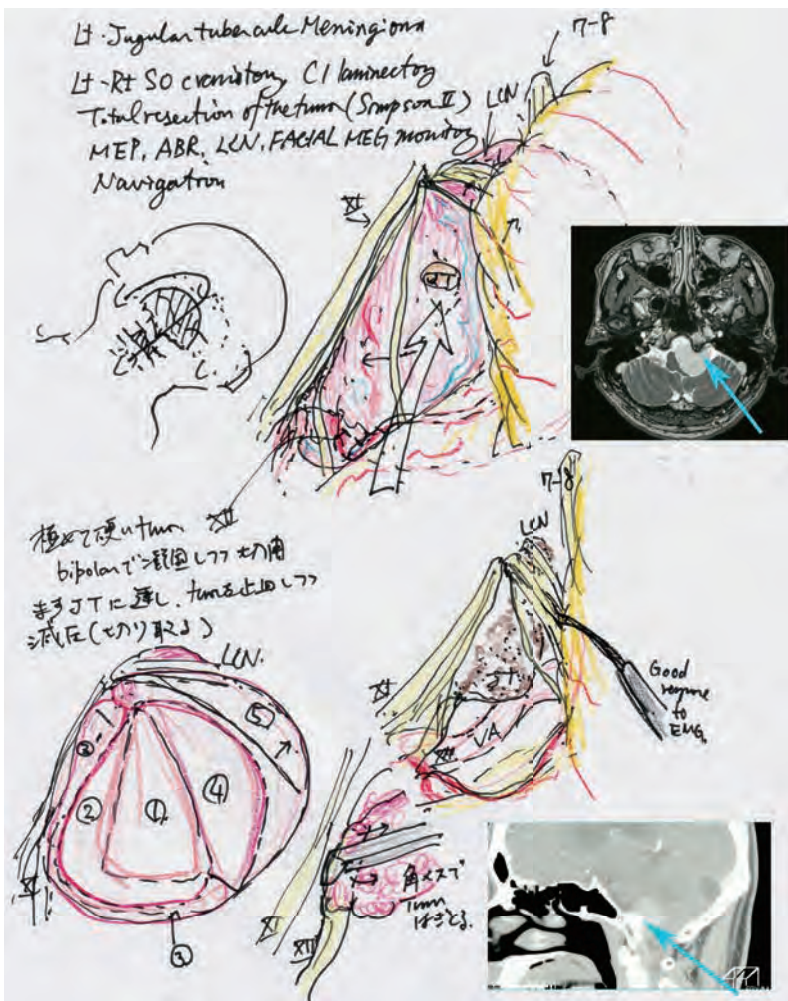 Lt-Jugular tubercule Meningiona
Lt-Rt SO craniotomy, C1 laminectoy
Total resection of the tumor (Simpson II)
MEP, ABR, LCN, FACIAL MEG monitoy
Navigation
7-8
LCN
XI
JT
XII
極めて硬いtumor
bipolarで凝固しつつ切開
まずJTに達し、tumorを止血しつつ
減圧(切り取る)
LCN.
②
⑤
②
①
④
XI
③
7-8
LCN
XI
JT
VA
XII
Good
response
to
EMG.
XI
XII
角メスで
tumor
はぎとる.